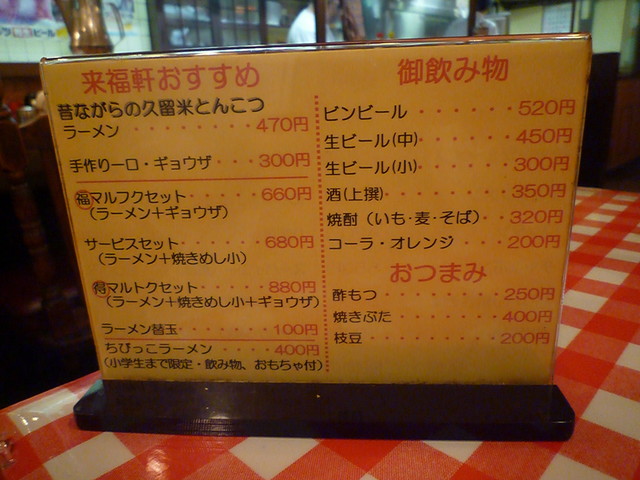 来福軒おすすめ
昔ながらの久留米とんこつ
ラーメン・・・・・・・470円
手作り一口・ギョウザ・・・・300円
福マルフクセット・・・・・660円
(ラーメン+ギョウザ)
サービスセット・・・・・680円
(ラーメン+焼きめし小)
得マルトクセット・・・・・880円
(ラーメン+焼きめし小+ギョウザ)
ラーメン替玉・・・・・・・100円
ちびっこラーメン・・・・400円
(小学生まで限定・飲み物、おもちゃ付)
御飲み物
ビンビール・・・・・・・520円
生ビール(中)・・・・・・450円
生ビール(小)・・・・・・300円
酒(上撰)・・・・・・・・350円
焼酎(いも・麦・そば)・・320円
コーラ・オレンジ・・・・200円
おつまみ
酢もつ・・・・・・・・・250円
焼きぶた・・・・・・・・400円
枝豆・・・・・・・・・・200円